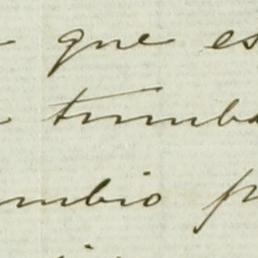 que es
tumba
mbio p